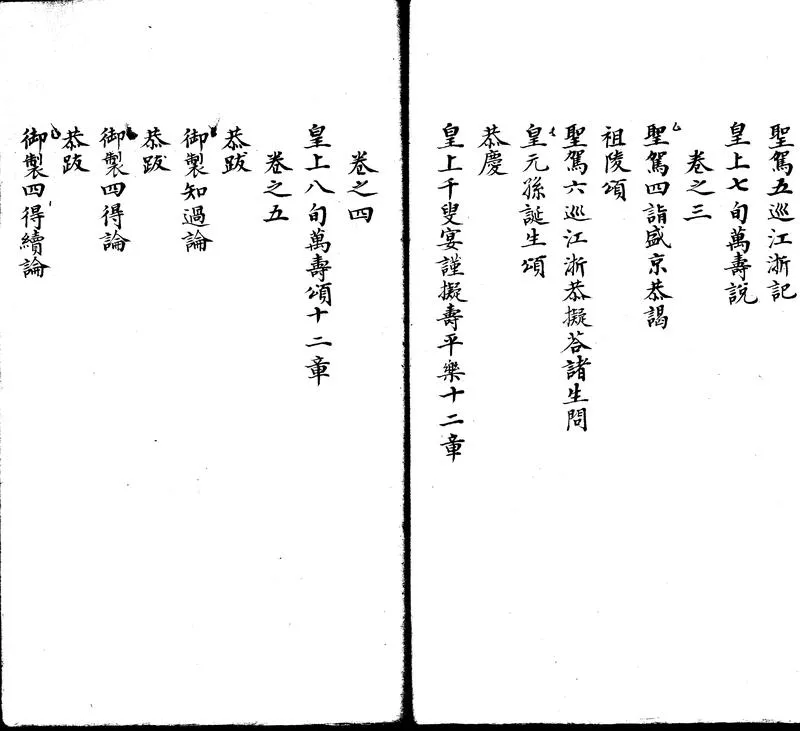 聖駕五巡江浙記
皇上七旬萬壽説
卷之三
聖駕四詣盛京恭謁
祖陵頌
聖駕六巡江浙恭擬荅諸生問
皇元孫誕生頌
恭慶
皇上千叟宴謹擬壽平樂十二章
卷之四
皇上八旬萬壽頌十二章
卷之五
恭跋
御製知過論
恭跋
御製四得論
恭跋
御製四得續論